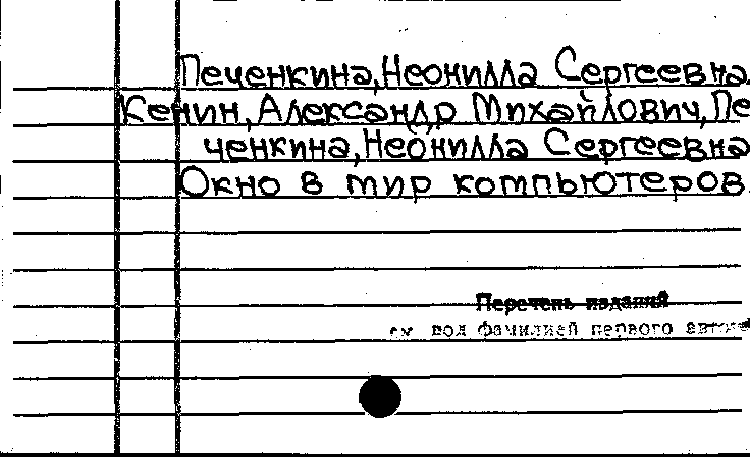 Печенкина, Неонилла Сергеевна
Кенин, Александр Михайлович, Пе
ченкина, Неонилла Сергеевна
Окно в мир компьютеров
Перечень изданий
см под фамилией первого автора